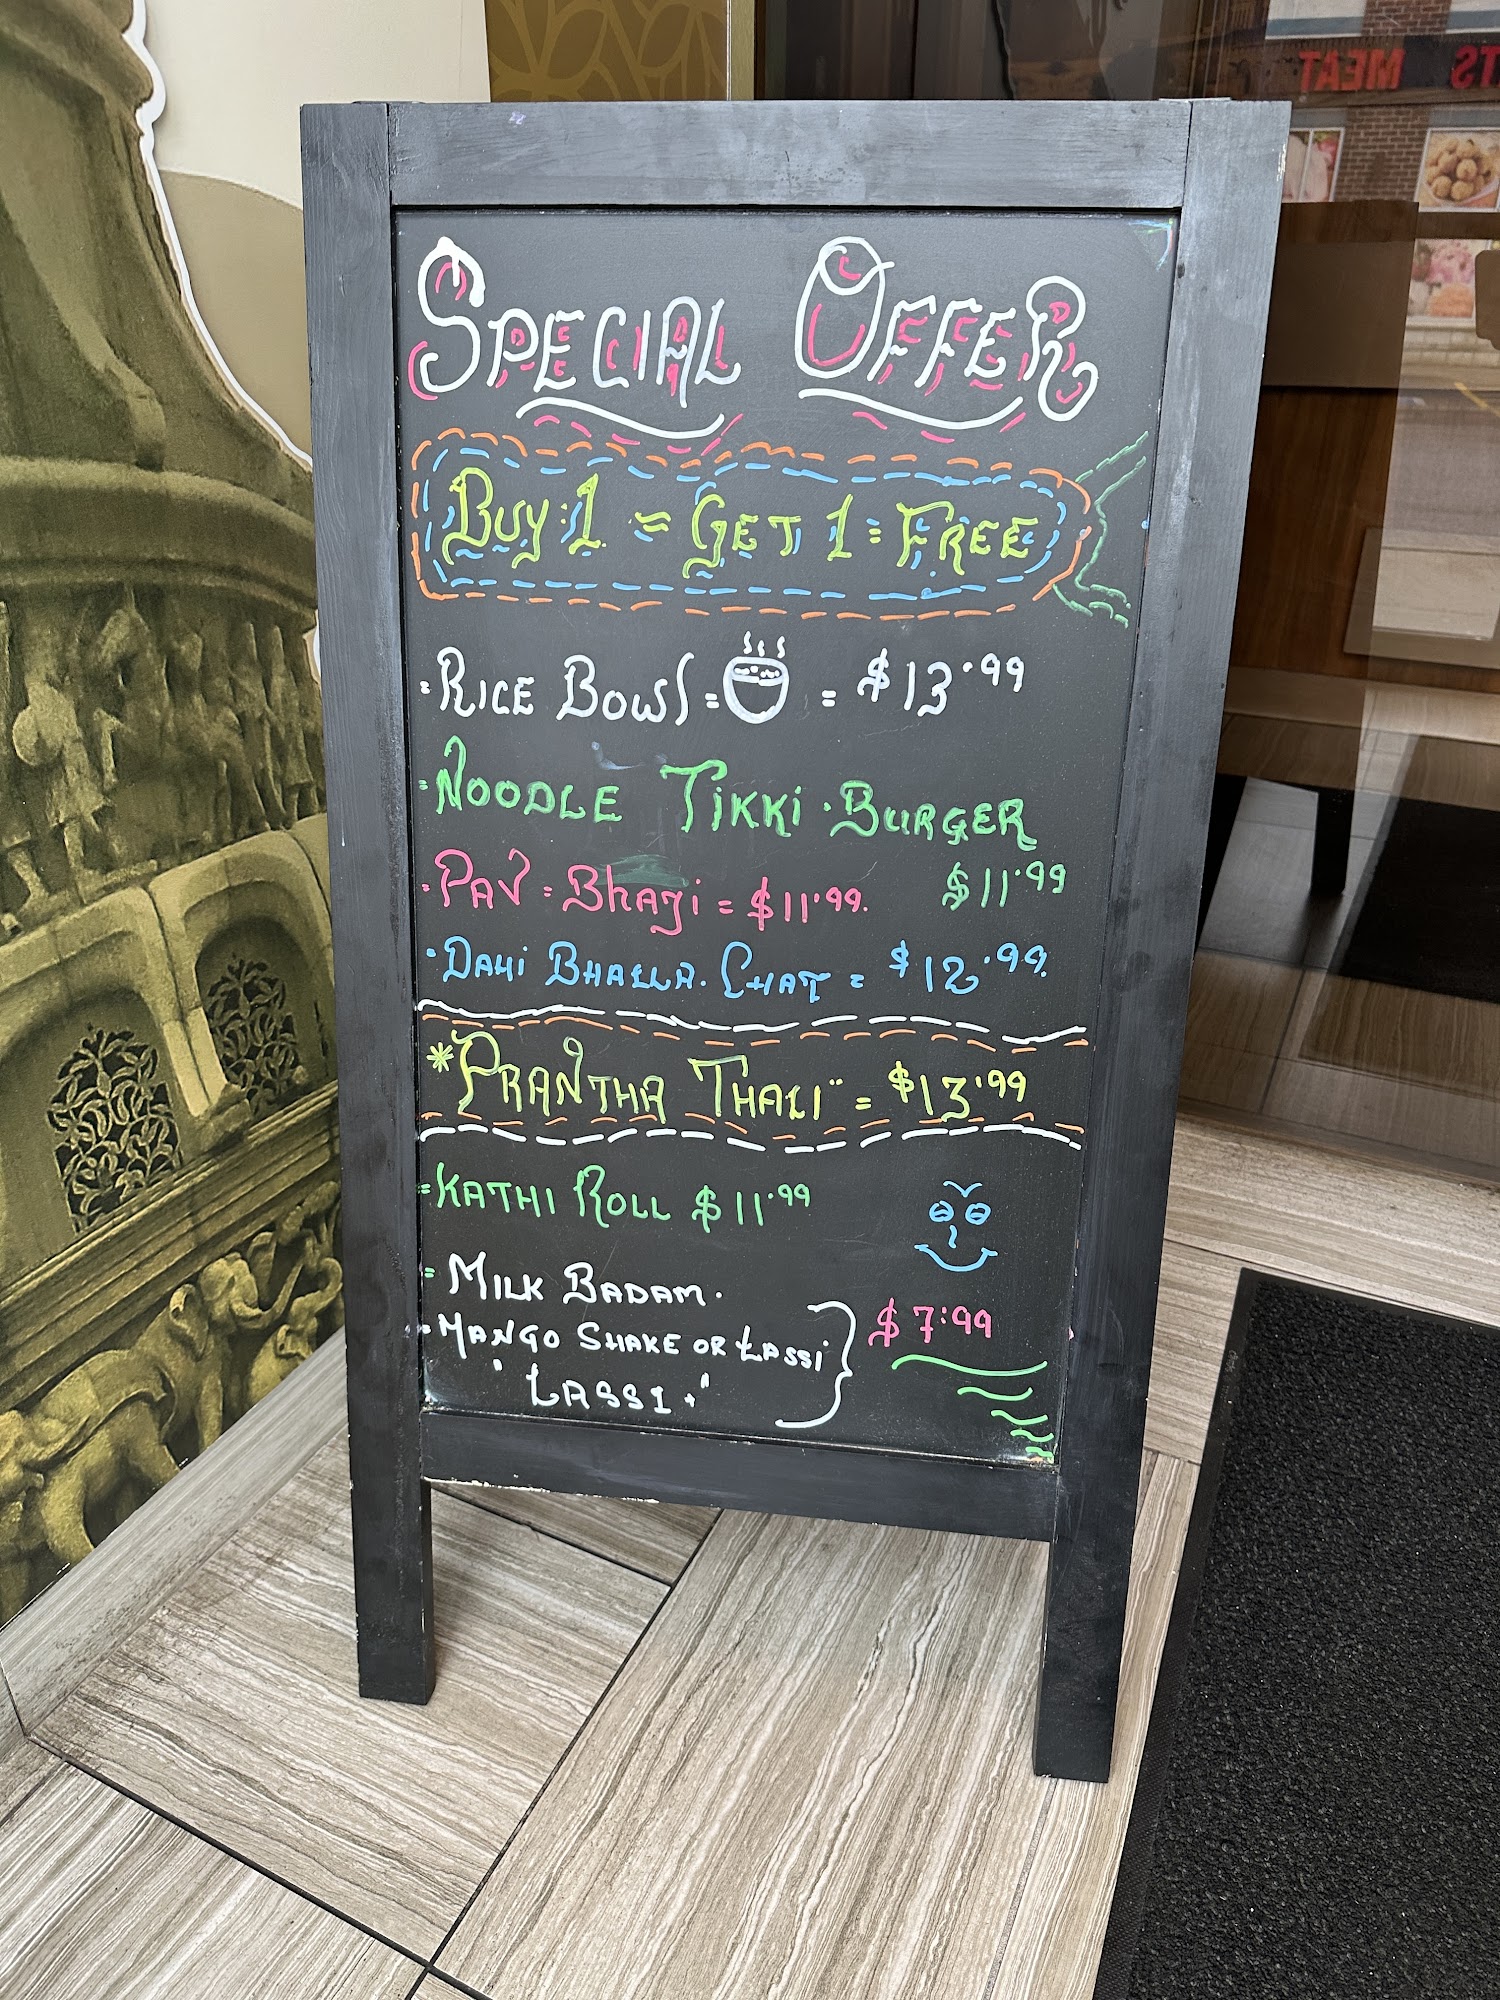 SPECIAL OFFER
BUY 1 = GET 1 = FREE
= RICE BOWL = = $13.99
= NOODLE TIKKI · BURGER
$11.99
= PAV = BHAJI = $11.99.
· DAHI BHALLA. CHAT = $12.99.
* "PRANTHA THALI" = $13.99
= KATHI ROLL $11.99
= MILK BADAM.
· MANGO SHAKE OR LASSI
" LASSI + "
$7:99
MEAT